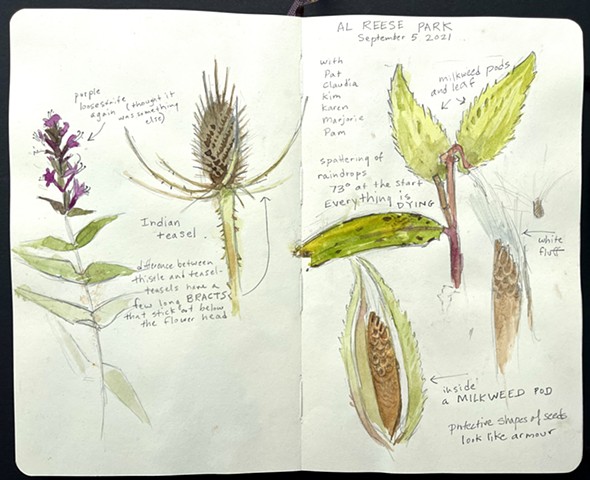 purple
loosestrife
again (thought it
was something
else)
Indian
teasel
difference between
thistle and teasel-
teasels have a
few long BRACTS
that stick out below
the flower head
AL REESE PARK
September 5 2021
with
Pat
Claudia
Kim
Karen
Marjorie
Pam
milkweed pods
and leaf
spattering of
raindrops
73° at the start
Everything is
DYING
white
fluff
inside
a MILKWEED POD
protective shapes of seeds
look like armour